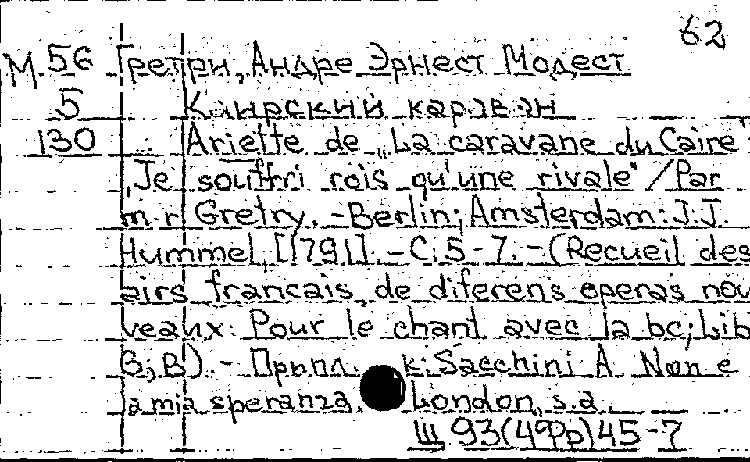 62
М.56 Гретри, Андре Эрнест Модест
5 Каирский караван
130 Ariette de „La caravane du Caire"
„Je souffri rois qu'une rivale" / Par
m-r Gretry. - Berlin; Amsterdam: J.J.
Hummel, [1791]. - С.5-7. - (Recueil des
airs francais, de diferens operas nou
veaux: Pour le chant avec la bc; Lib
B; B). - Прыпл. к: Sacchini A. Non e
la mia speranza. London, s.a.
Ш 93(4Фр)45-7